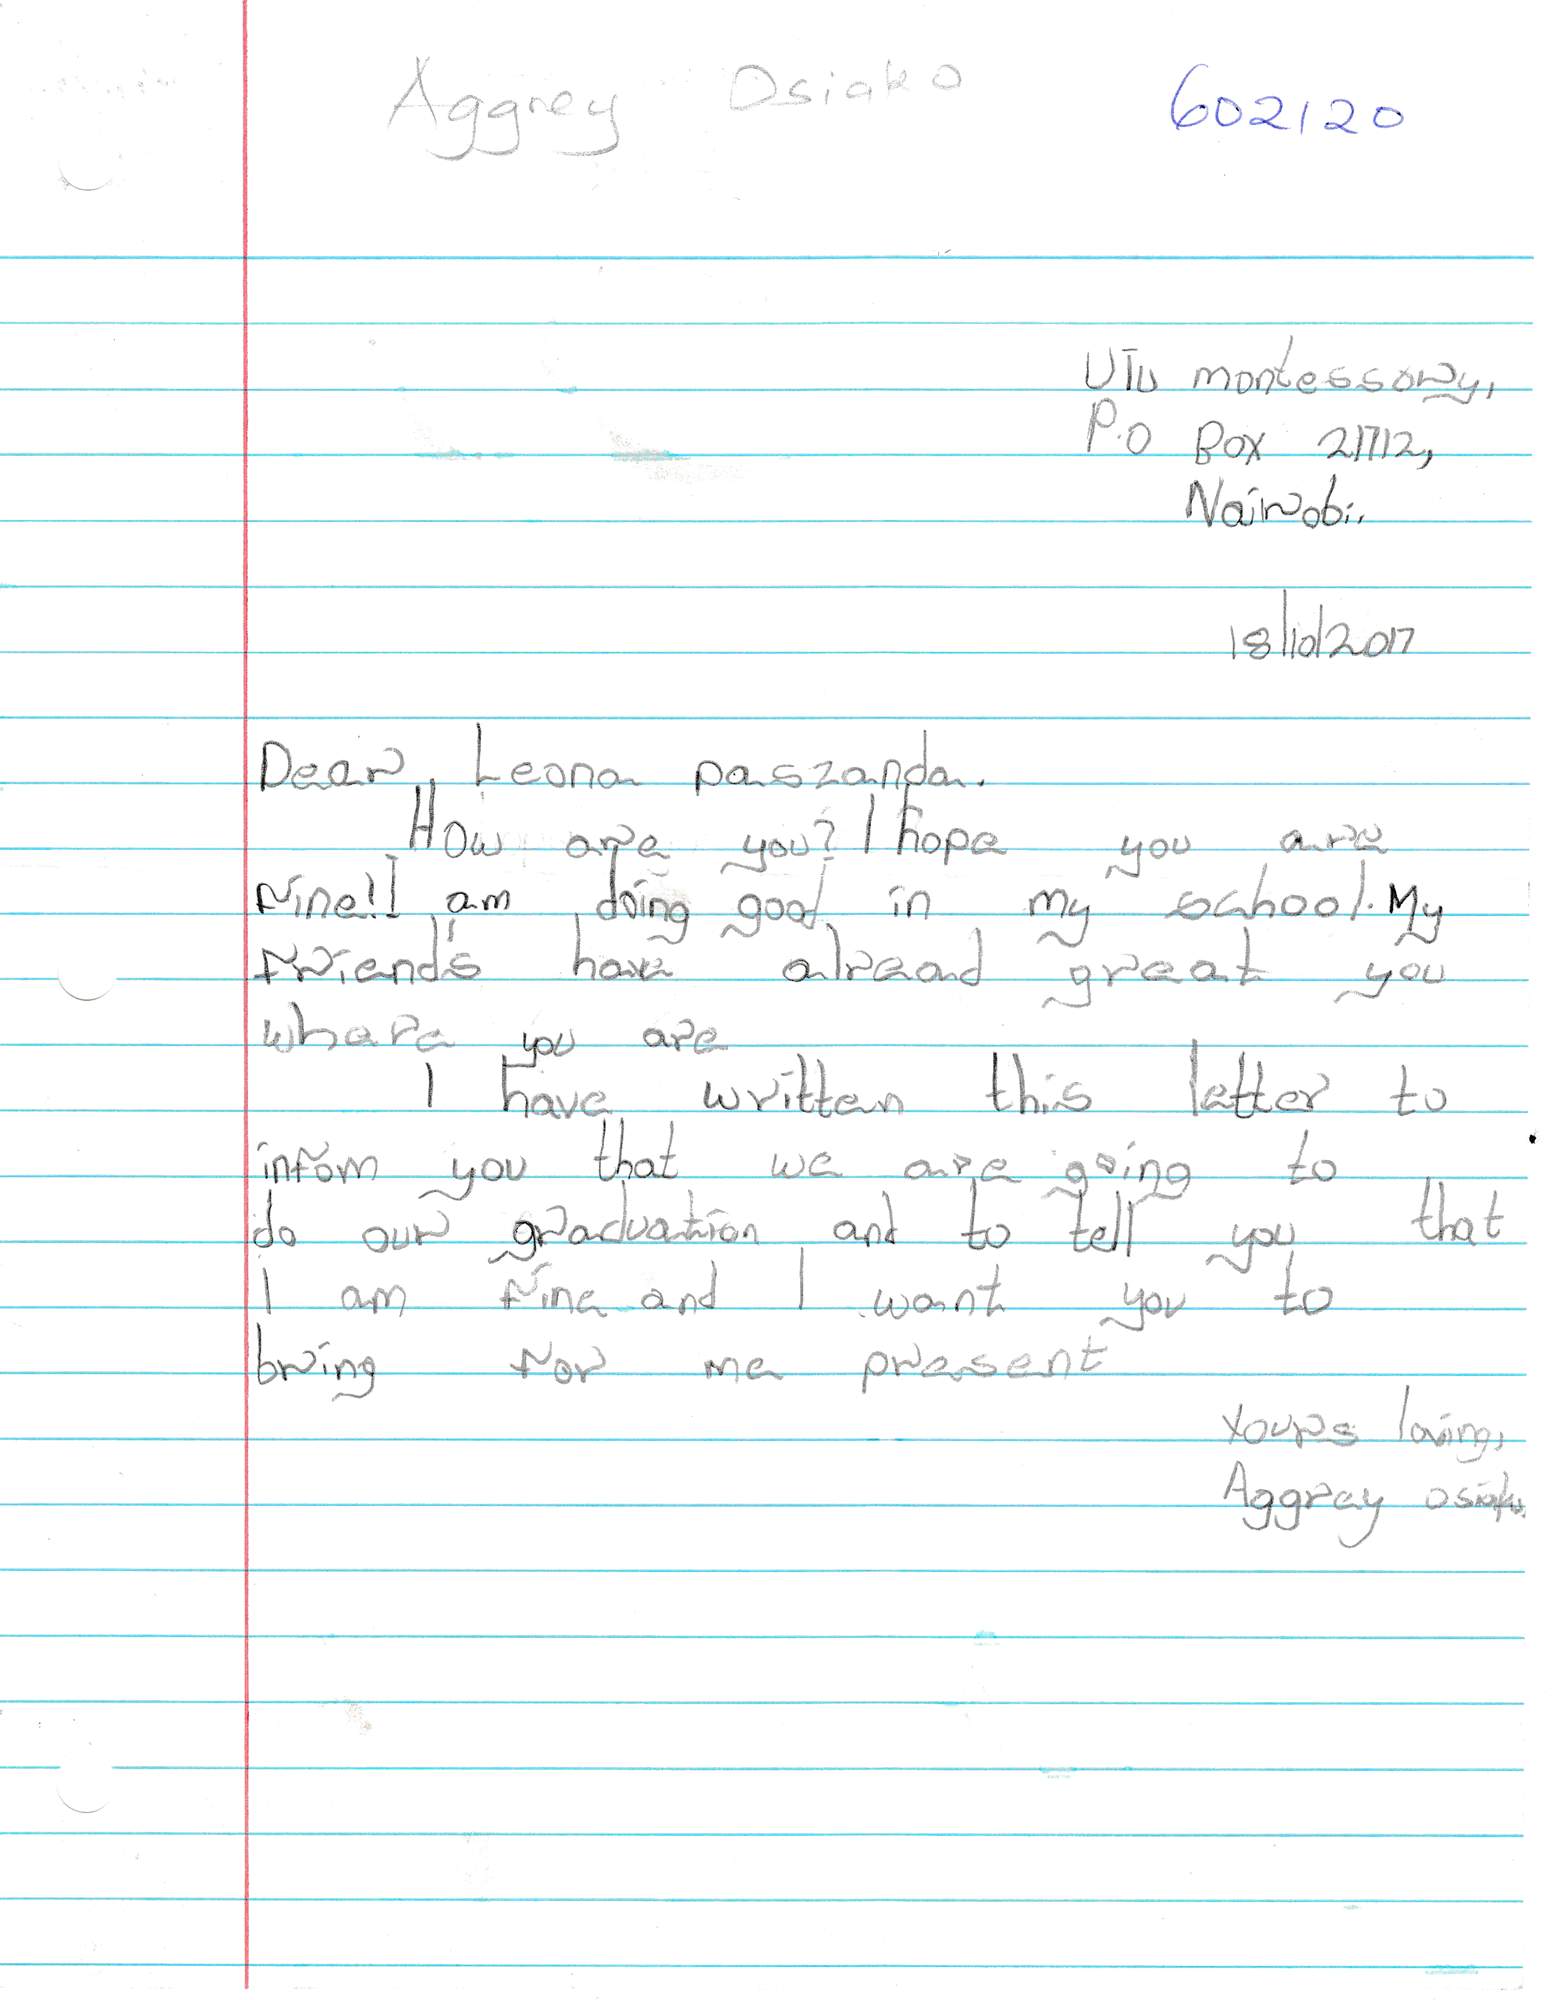 Aggrey Osiako 602120
UTU montessory,
P.O Box 21712,
Nairobi.
18/10/2017
Dear, Leona paszanda.
How are you? I hope you are
fine!I am doing good in my school. My
friend's have alread great you
where you are
I have written this letter to
infom you that we are going to
do our graduation and to tell you that
I am fine and I want you to
bring for me present
Yours loving,
Aggrey Osiako.